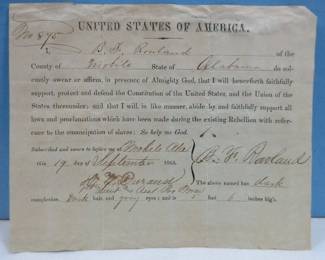 No 875
UNITED STATES OF AMERICA.
I, B. F. Rowland of the
County of Mobile State of Alabama do sol-
emnly swear or affirm, in presence of Almighty God, that I will henceforth faithfully
support, protect and defend the Constitution of the United States, and the Union of the
States thereunder; and that I will, in like manner, abide by and faithfully support all
laws and proclamations which have been made during the existing Rebellion with refer-
ence to the emancipation of slaves: So help me God.
Subscribed and sworn to before me at Mobile Ala
this 19 day of September 1865.
B. F. Rowland
Durand
Lieut Asst Pro
The above named has dark
complexion, dark hair, and gray eyes; and is 5 feet 6 inches high.